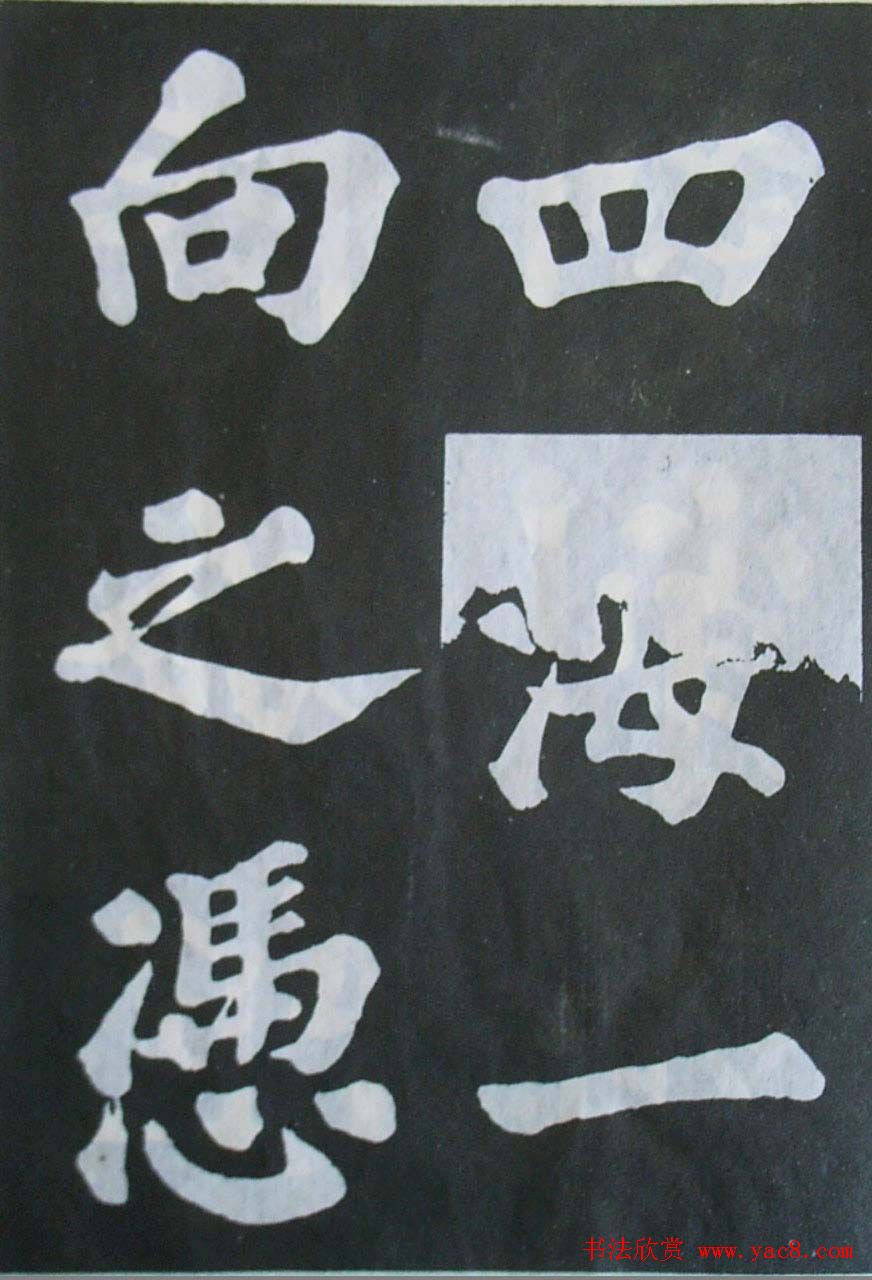 四海一
向之憑
书法欣赏 www.yac8.com